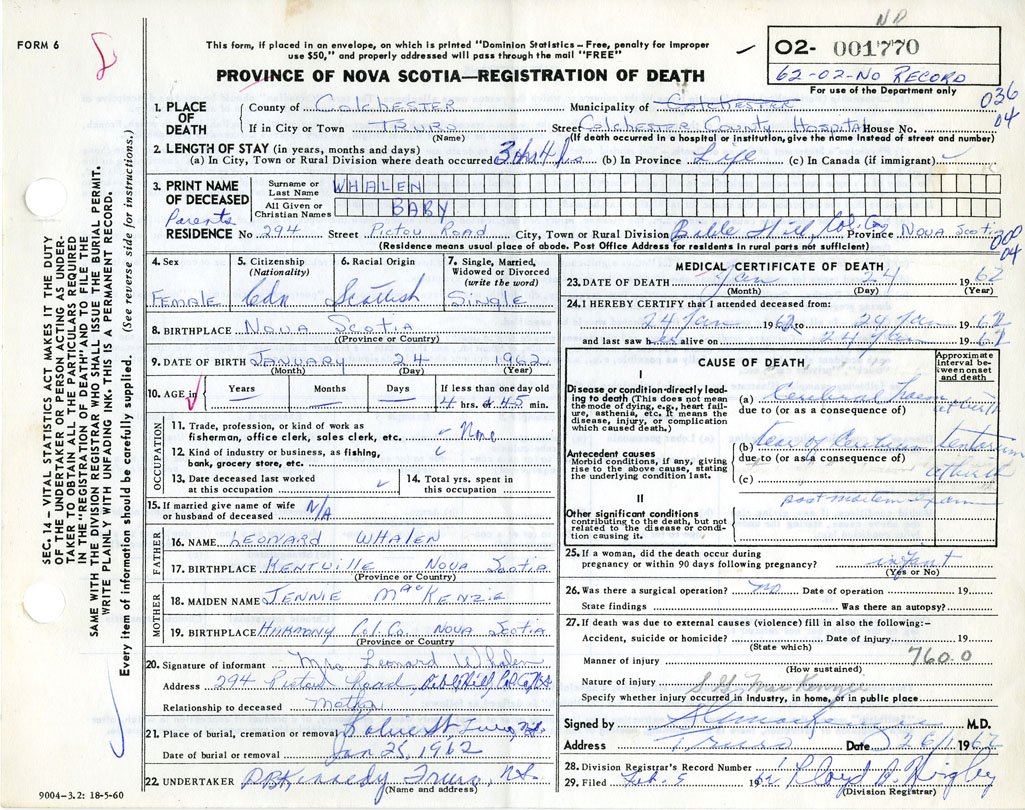 ND
FORM 6
This form, if placed in an envelope, on which is printed "Dominion Statistics – Free, penalty for improper
use $50," and properly addressed will pass through the mail "FREE"
02- 001770
62-02-No RECORD
For use of the Department only
PROVINCE OF NOVA SCOTIA—REGISTRATION OF DEATH
036
04
1. PLACE OF DEATH County of COLCHESTER Municipality of COLCHESTER
If in City or Town TRURO Street COLCHESTER COUNTY HOSPITAL House No.
(Name) (If death occurred in a hospital or institution, give its name instead of street and number)
2. LENGTH OF STAY (in years, months and days)
(a) In City, Town or Rural Division where death occurred (b) In Province Life (c) In Canada (if immigrant)
3. PRINT NAME OF DECEASED Surname or Last Name WHALEN
All Given or Christian Names BABY
Parents
RESIDENCE No. 294 Street PICTOU ROAD City, Town or Rural Division Bible Hill Col. Co. Province NOVA SCOTIA
(Residence means usual place of abode. Post Office Address for residents in rural parts not sufficient)
000
04
4. Sex 5. Citizenship (Nationality) 6. Racial Origin 7. Single, Married, Widowed or Divorced (write the word)
FEMALE Cdn Scottish SINGLE
8. BIRTHPLACE NOVA SCOTIA
(Province or Country)
9. DATE OF BIRTH JANUARY 24 1962
(Month) (Day) (Year)
10. AGE in Years Months Days If less than one day old
4 hrs. or 45 min.
OCCUPATION
11. Trade, profession, or kind of work as
fisherman, office clerk, sales clerk, etc. None
12. Kind of industry or business, as fishing,
bank, grocery store, etc.
13. Date deceased last worked
at this occupation
14. Total yrs. spent in
this occupation
15. If married give name of wife
or husband of deceased N/A
FATHER
16. NAME LEONARD WHALEN
17. BIRTHPLACE KENTVILLE NOVA SCOTIA
(Province or Country)
MOTHER
18. MAIDEN NAME JENNIE MacKENZIE
19. BIRTHPLACE HARMONY Col. Co. NOVA SCOTIA
(Province or Country)
20. Signature of informant Mrs. Leonard Whalen
Address 294 Pictou Road, Bible Hill, Col. Co., N.S.
Relationship to deceased Mother
21. Place of burial, cremation or removal Truro, N.S.
Date of burial or removal Jan 25, 1962
22. UNDERTAKER Kennedy Truro, N.S.
(Name and address)
MEDICAL CERTIFICATE OF DEATH
23. DATE OF DEATH Jan 24 1962
(Month) (Day) (Year)
24. I HEREBY CERTIFY that I attended deceased from:
24 Jan 1962 to 24 Jan 1962
and last saw h alive on 24 Jan 1962
CAUSE OF DEATH
Approximate interval between onset and death
I
Disease or condition directly lead-
ing to death (This does not mean
the mode of dying, e.g., heart fail-
ure, asthenia, etc. It means the
disease, injury, or complication
which caused death.)
(a) Cerebral at birth
due to (or as a consequence of)
(b) tear of tentorium
due to (or as a consequence of)
(c) at birth
Antecedent causes
Morbid conditions, if any, giving
rise to the above cause, stating
the underlying condition last.
II
post mortem exam
Other significant conditions
contributing to the death, but not
related to the disease or condi-
tion causing it.
25. If a woman, did the death occur during
pregnancy or within 90 days following pregnancy? infant
(Yes or No)
26. Was there a surgical operation? no Date of operation 19
State findings Was there an autopsy?
27. If death was due to external causes (violence) fill in also the following:-
Accident, suicide or homicide? Date of injury 19
(State which)
Manner of injury 760.0
(How sustained)
Nature of injury
S G MacKenzie
Specify whether injury occurred in Industry, in home, or in public place
Signed by M.D.
Address Truro Date 26/1 1962
28. Division Registrar's Record Number 1
29. Filed Feb. 5 1962 Lloyd
(Division Registrar)
SEC. 14 – VITAL STATISTICS ACT MAKES IT THE DUTY
OF THE UNDERTAKER OR PERSON ACTING AS UNDER-
TAKER TO OBTAIN ALL THE PARTICULARS REQUIRED
IN THE "REGISTRATION OF DEATH" AND TO FILE THE
SAME WITH THE DIVISION REGISTRAR WHO SHALL ISSUE THE BURIAL PERMIT.
WRITE PLAINLY WITH UNFADING INK. THIS IS A PERMANENT RECORD.
Every item of information should be carefully supplied. (See reverse side for instructions.)
9004-3.2: 18-5-60